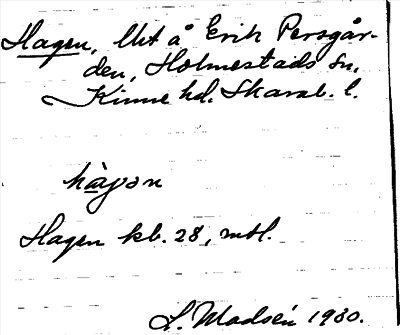 Hagen, lht å Erik Persgår-
den, Holmestads sn,
Kinne hd. Skarab. l.
hàgən
Hagen kb. 28, mtl.
L. Modsén 1930.